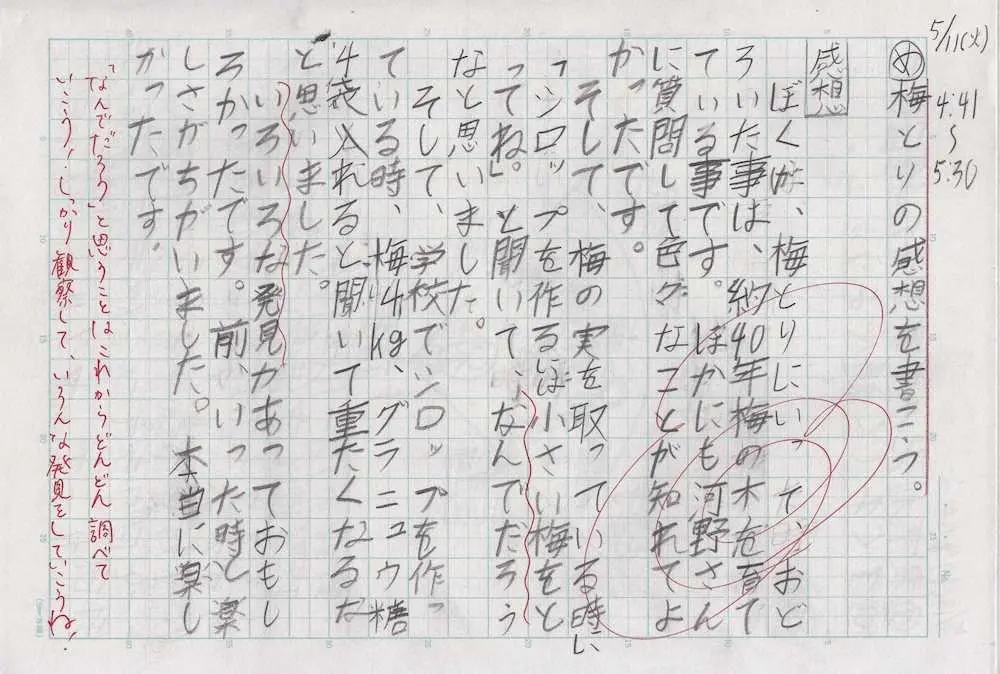 5/11(火)
4:41
〜
5:30
め 梅とりの感想を書こう。
感想
ぼくが、梅とりにいって、おど
ろいた事は、約40年梅の木を育て
ている事です。ほかにも河野さん
に質問して色々なことが知れてよ
かったです。
そして、梅の実を取っている時に、
「シロップを作るには小さい梅をと
ってね」。と聞いて、なんでだろう
なと思いました。
そして、学校でシロップを作っ
ている時、梅4kg、グラニュウ糖
4袋入れると聞いて重たくなるな
と思いました。
いろいろな発見があっておもし
ろかったです。前、いった時と楽
しさがちがいました。本当に楽し
かったです。
「なんでだろう」と思うことはこれからどんどん調べて
いこう!しっかり観察して、いろんな発見をしていこうね!